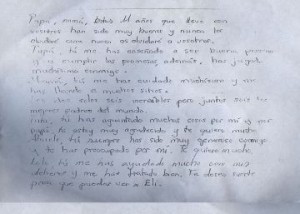 Papá, mamá, estos 11 años que llevo con
vosotros han sido muy buenos y nunca los
olvidaré como nunca os olvidaré a vosotros.
Papá, tú me has enseñado a ser buena persona
y a cumplir las promesas, además, has jugado
muchísimo conmigo.
Mamá, tú me has cuidado muchísimo y me
has llevado a muchos sitios.
Los dos sois increíbles pero juntos sois los
mejores padres del mundo.
tú has aguantado muchas cosas por mí y por
papá. Te estoy muy agradecido y te quiero mucho.
Abuelo, tú siempre has sido muy generoso conmigo
y te has preocupado por mí. Te quiero mucho.
tú me has ayudado mucho con mis
deberes y me has tratado bien. Te doy
para que puedas ver a Eli.